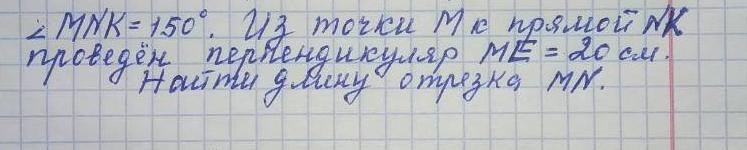 ∠MNK=150°. Из точки M к прямой NK
проведён перпендикуляр ME=20 см.
Найти длину отрезка MN.